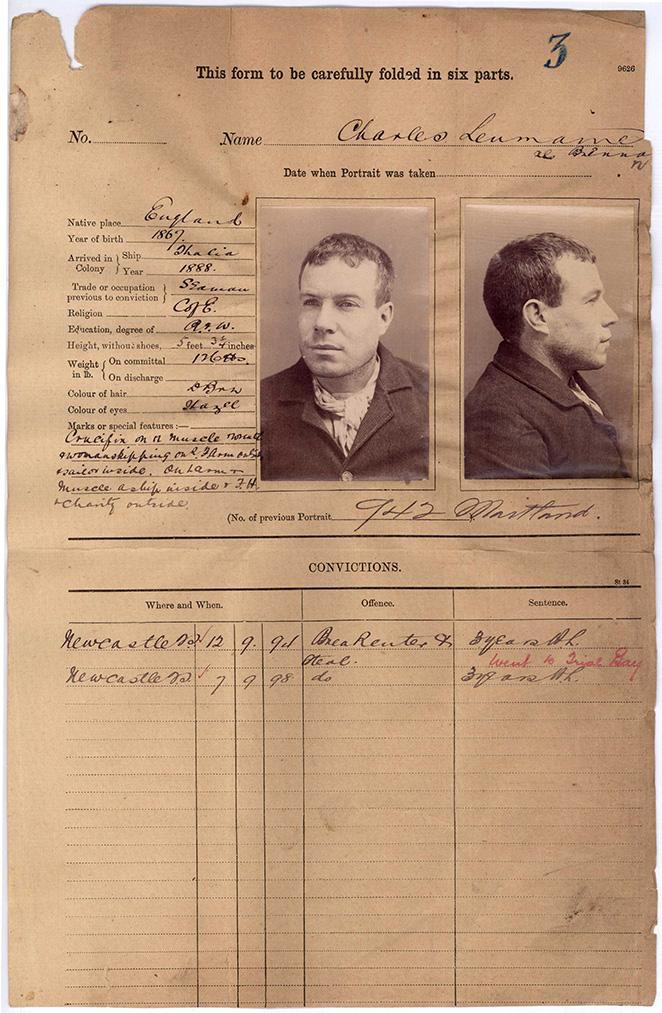 3
This form to be carefully folded in six parts.
9626
No. Name Charles Leumaine
als Brenna
n
Date when Portrait was taken
Native place England
Year of birth 1867
Arrived in Colony } Ship Thalia
Year 1888.
Trade or occupation previous to conviction } Seaman
Religion C of E.
Education, degree of R & W.
Height, without shoes, 5 feet 3¼ inches
Weight in lb. { On committal 126 lbs.
On discharge
Colour of hair D Brn
Colour of eyes Hazel
Marks or special features:—
Crucifix on R muscle
& woman skipping on L F arm
& sailor inside. On L arm &
Muscle a ship inside & F.H.
& Charity outside
(No. of previous Portrait 942 Maitland.
CONVICTIONS.
St 34
Where and When. Offence. Sentence.
Newcastle 12 9. 94 Break enter & 3 years H.L.
Steal. went to Trial Bay
Newcastle 7 9 98 do 3 years H.L.